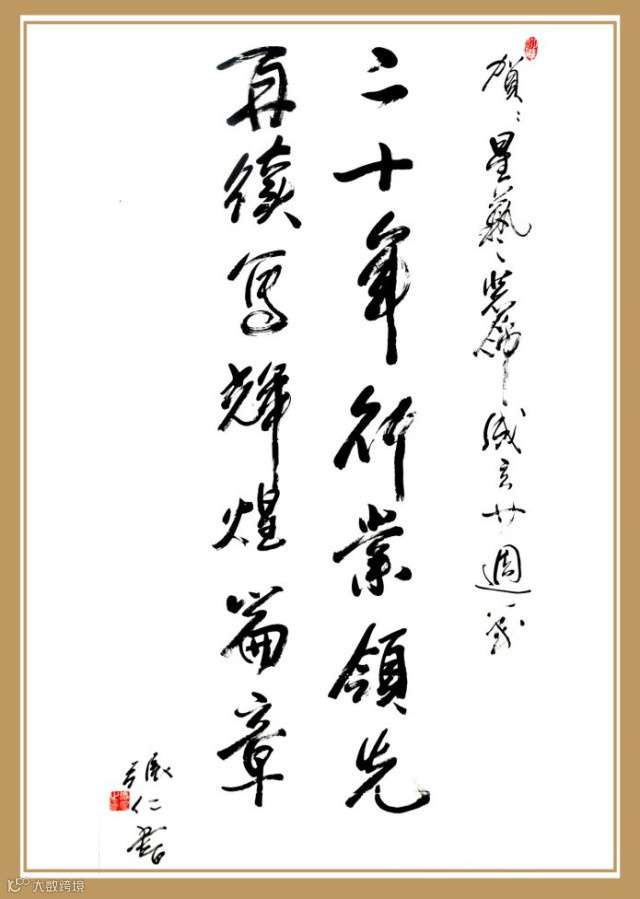 賀：星藝裝飾成立廿週年
二十年行業領先
再續寫輝煌篇章
張仁書
大数跨境